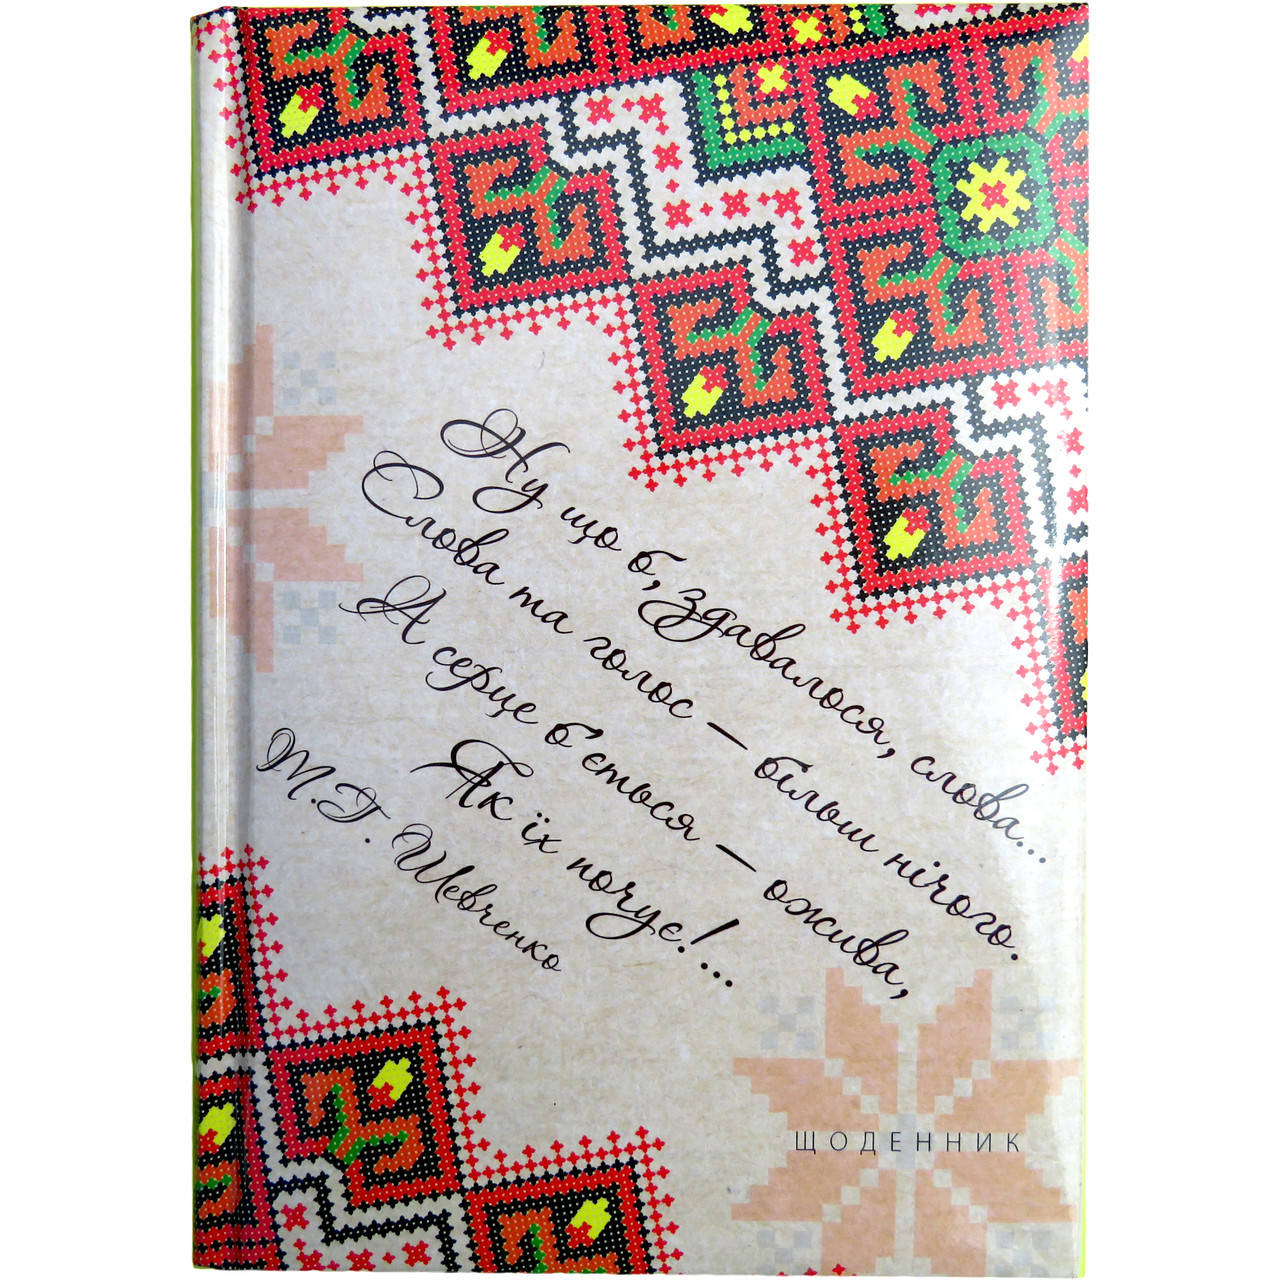 Ну що б, здавалося, слова...
Слова та голос – більш нічого.
А серце б'ється – ожива,
Як їх почує!...
Т.Г. Шевченко
ЩОДЕННИК